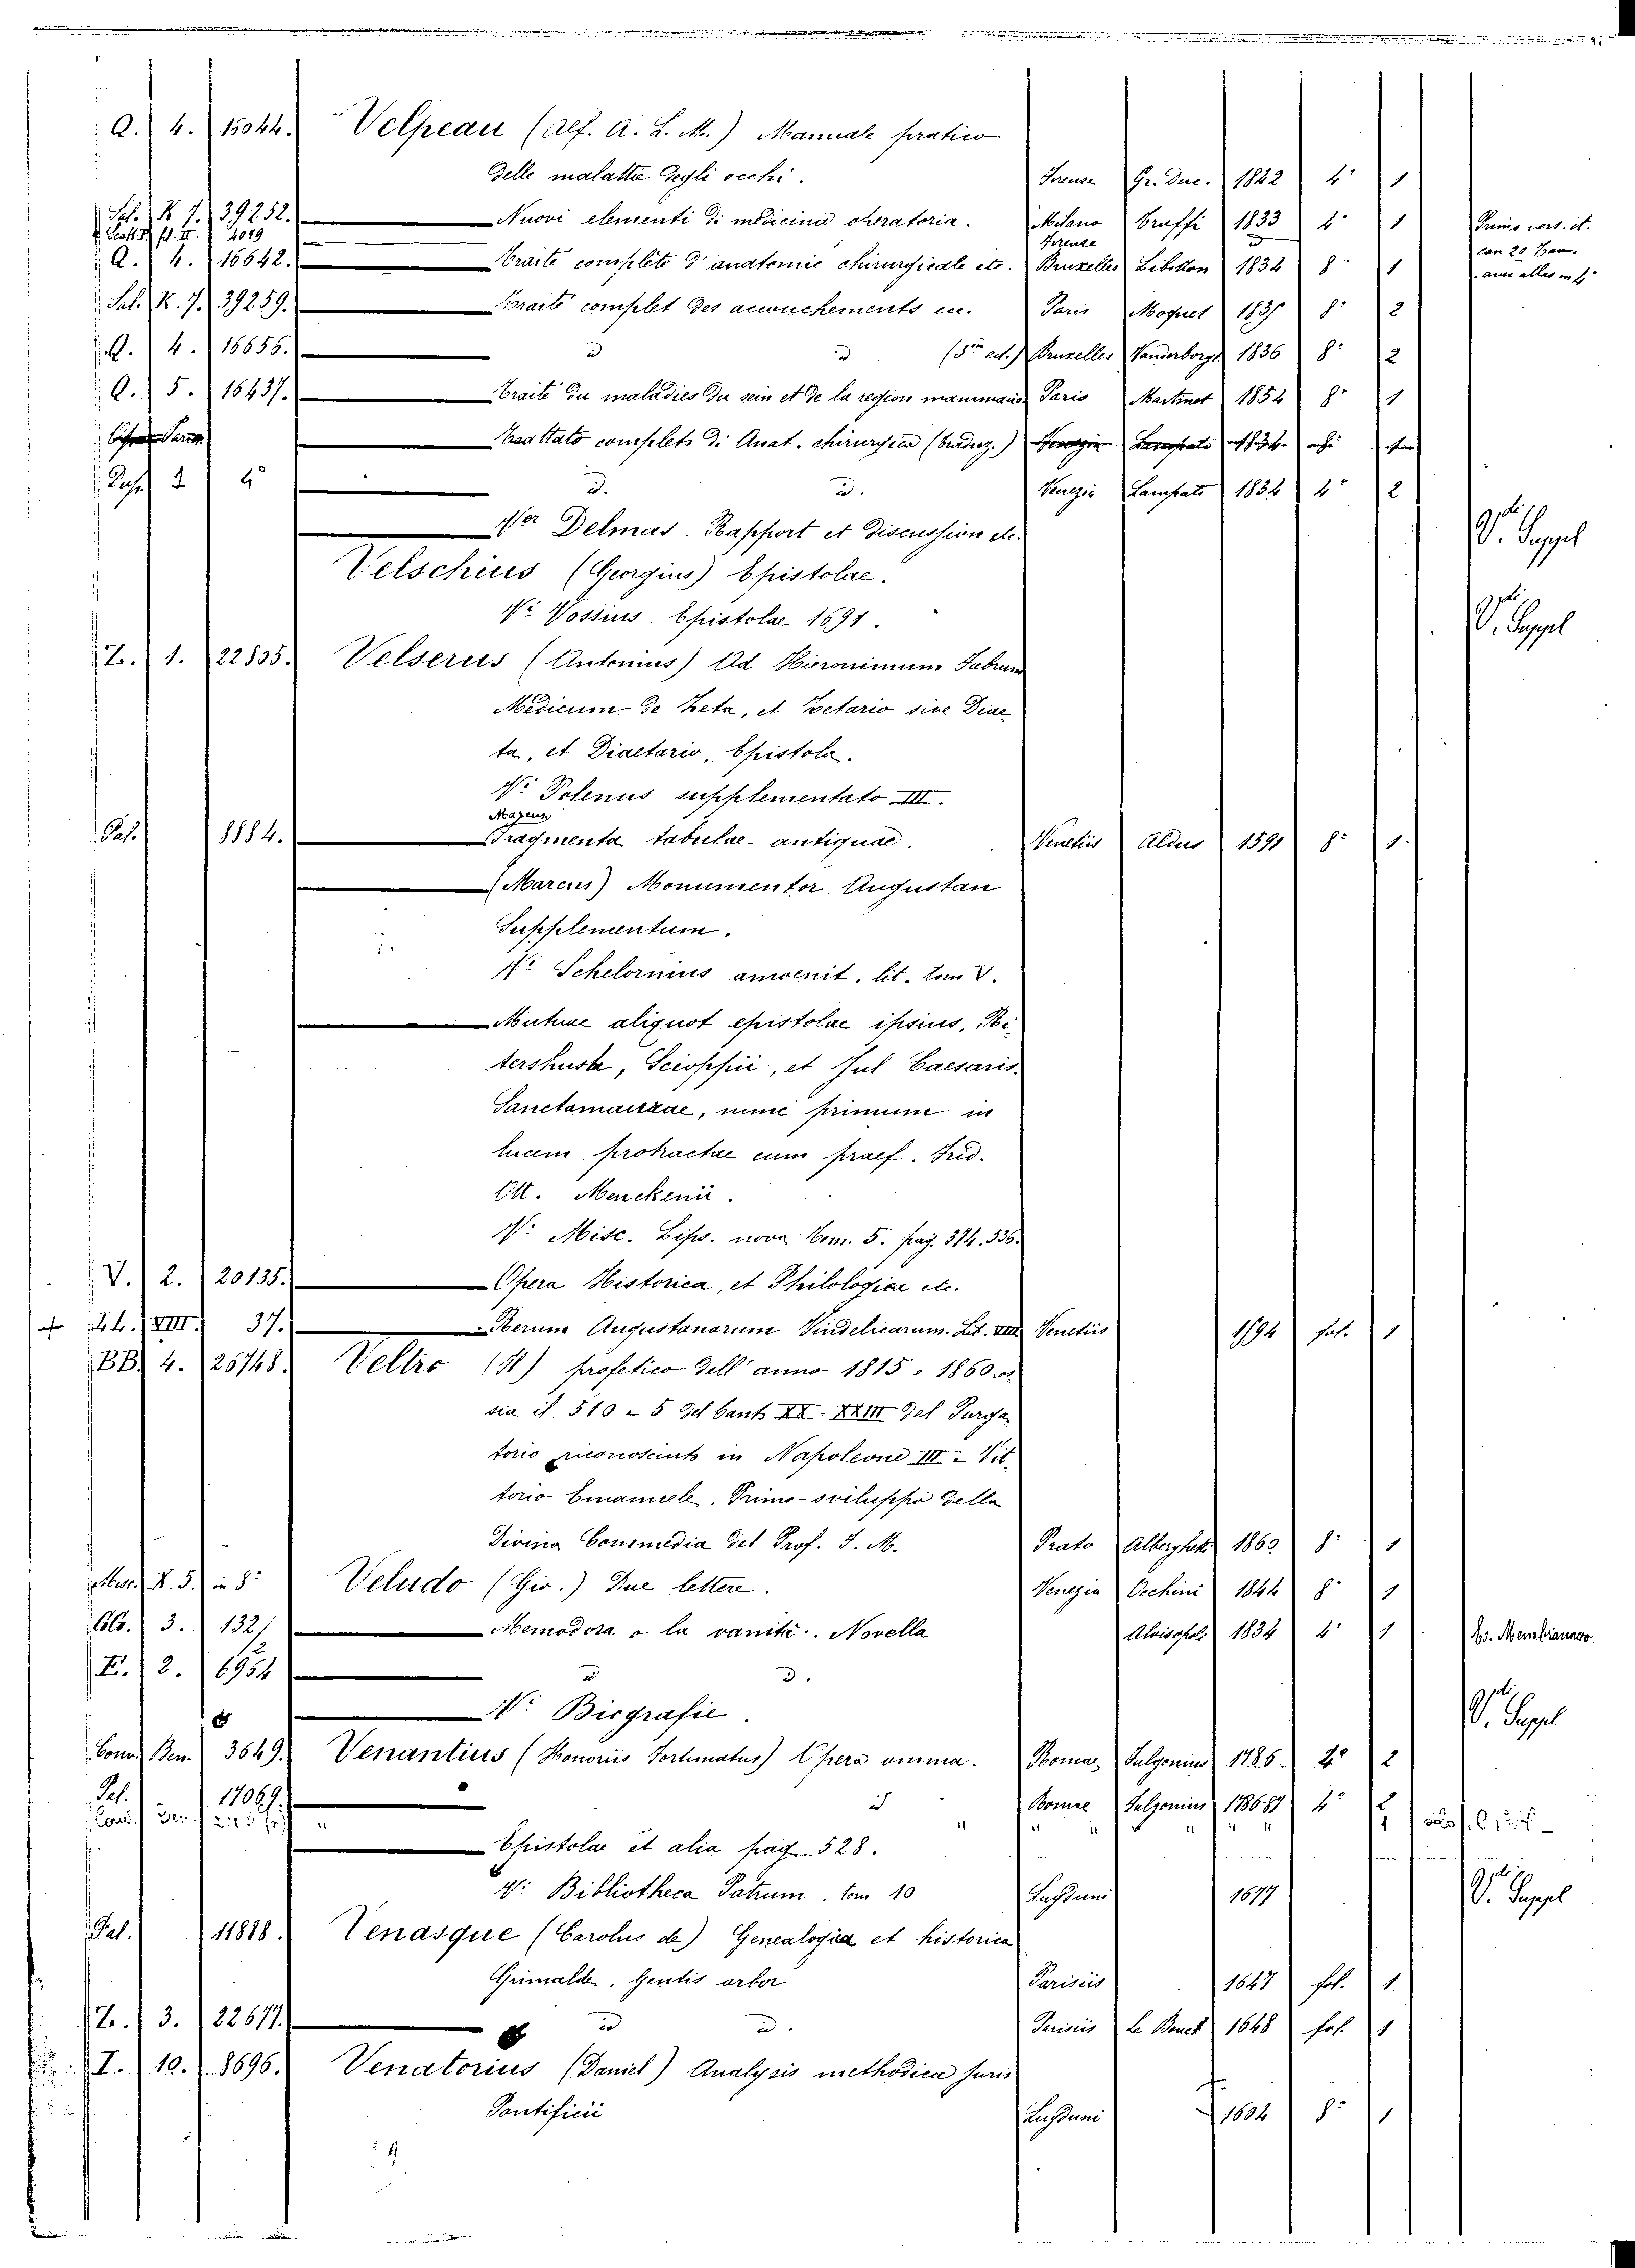 A. 4. 15044. Velpeau (Alf. A. L. M.) Manuale pratico
delle malattie degli occhi. Firenze Gr. Duc. 1842 4° 1
Sal. K 7. 39252. Nuovi elementi di medicina operatoria. Milano Truffi 1833 4° 1
2019 Firenze
A. 4. 15642. Traité complète d'anatomie chirurgicale etc. Bruxelles Libotton 1834 8° 1
Sal. K. 7. 39259. Traité complet des accouchements etc. Paris Moquet 1835 8° 2
A. 4. 15655. id id (5me ed.) Bruxelles Vanderborght 1836 8° 2
A. 5. 15437. Traité du maladies du sein et de la region mammaire Paris Martinet 1854 8° 1
Trattato completo di Anat. chirurgica (traduz.) Venezia Lampato 1834
2 4° id. id. Venezia Lampato 1834 4° 2
Ver Delmas. Rapport et discussion etc. V. Suppl
Velschius (Georgius) Epistolae.
V. Vossius. Epistolae 1691. V. Suppl
Z. 1. 22805. Velserus (Antonius) Ad Hieronimum Fabrum
Medicum de Zeta, et Zetario sive Diae
ta, et Diaetario, Epistola.
V. Polenus supplementato III.
Marcus
Pal. 8884. Fragmenta tabulae antiquae. Venetiis Aldus 1591 8° 1.
(Marcus) Monumentor Augustan
Supplementum.
V. Schelornius amoenit. lit. tom V.
Mutuae aliquot epistolae ipsius, Ri
tershusii, Scioppii, et Jul Caesaris
Sanctamaurae, nunc primum in
lucem protractae cum praef. Frid.
Ott. Menckenii.
V. Misc. Lips. nova Tom. 5. pag. 374. 536.
V. 2. 20135. Opera Historica, et Philologica etc.
VIII. 37. Rerum Augustanarum Vindelicarum. Lib. VIII Venetiis 1594 fol. 1
BB. 4. 25748. Veltro (Il) profetico dell' anno 1815 e 1860. o
sia il 510 e 5 del Canto XX. XXXIII del Purga
torio riconosciuto in Napoleone III e Vit
torio Emanuele. Primo sviluppo della
Divina Commedia del Prof. J. M. Prato Alberghetti 1860 8° 1
5. in 8° Veludo (Gio.) Due lettere. Venezia Occhini 1844 8° 1
3. 132, Memodora o la vanità. Novella Alvisopoli 1834 4° 1 Es. Membranaceo
E. 2. 6954 id id.
V. Biografie. V. Suppl
Cono. Ben. 3649. Venantius (Honoriis Fortunatus) Opera omnia. Romae Fulgonius 1786. 4° 2
Pal. 17069. id Romae Fulgonius 1786-87 4° 2
Epistolae et alia pag. 528.
V. Bibliotheca Patrum. tom 10 Lugduni 1677 V. Suppl
Pal. 11888. Venasque (Carolus de) Genealogica et historica
Grimaldae, Gentis arbor Parisiis 1647 fol. 1
Z. 3. 22677. id id. Parisiis Le Bouc 1648 fol. 1
I. 10. 8696. Venatorius (Daniel) Analysis methodica juris
Pontificii Lugduni 1604 8° 1